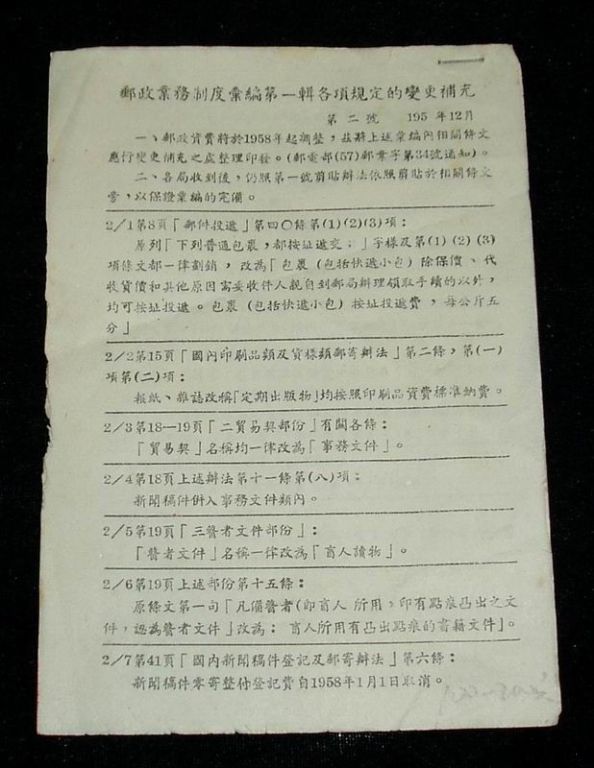 郵政業務制度彙編第一輯各項規定的變更補充
第二號 195 年12月
一、郵政資費將於1958年起調整,茲將上述彙編內相關條文
應行變更補充之處整理印發。(郵電部(57)郵業字第34號通知)。
二、各局收到後,仍照第一號剪貼辦法依照剪貼於相關條文
旁,以保證彙編的完備。
2/1第8頁「郵件投遞」第四〇條第(1)(2)(3)項:
原列「下列普通包裹,都按址遞交:」字樣及第(1)(2)(3)
項條文都一律劃銷,改為「包裹(包括快遞小包)除保價、代
收貨價和其他原因需要收件人親自到郵局辦理領取手續的以外,
均可按址投遞。包裹(包括快遞小包)按址投遞費,每公斤五
分」
2/2第15頁「國內印刷品類及貨樣類郵寄辦法」第二條,第(一)
項第(二)項:
報紙、雜誌改稱「定期出版物」均按照印刷品資費標準納費。
2/3第18—19頁「二貿易契部份」有關各條:
「貿易契」名稱均一律改為「事務文件」。
2/4第18頁上述辦法第十一條第(八)項:
新聞稿件併入事務文件類內。
2/5第19頁「三瞽者文件部份」:
「瞽者文件」名稱一律改為「盲人讀物」。
2/6第19頁上述部份第十五條:
原條文第一句「凡備瞽者(即盲人 所用,印有點痕凸出之文
件,認為瞽者文件」改為: 盲人所用有凸出點痕的書籍文件」。
2/7第41頁「國內新聞稿件登記及郵寄辦法」第六條:
新聞稿件零寄整付登記費自1958年1月1日取消。